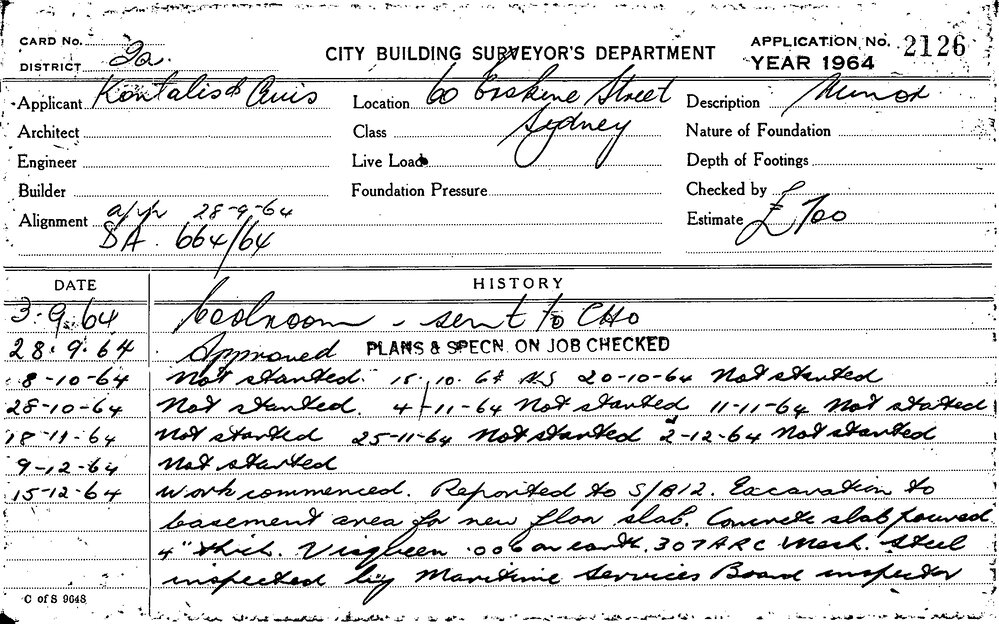 CARD No.
DISTRICT 2a.
CITY BUILDING SURVEYOR'S DEPARTMENT
APPLICATION No. 2126
YEAR 1964
Applicant Kontalis & Auis
Location 60 Erskine Street
Sydney
Description Minor
Architect
Class
Nature of Foundation
Engineer
Live Load
Depth of Footings
Builder
Foundation Pressure
Checked by
Alignment app 28-9-64
DA. 664/64
Estimate £700
DATE HISTORY
3.9.64 coolroom - sent to CHO
28.9.64 Approved PLANS & SPECN. ON JOB CHECKED
8-10-64 Not started. 15.10.64 NS 20-10-64 Not started
28-10-64 Not started. 4-11-64 Not started 11-11-64 Not stated
18-11-64 Not started 25-11-64 Not started 2-12-64 Not started
9-12-64 Not started
15-12-64 Work commenced. Reported to S/B12. Excavation to
basement area for new floor slab. Concrete slab poured
4" thick. Visqueen .006 on earth. 307 ARC Mesh. Steel
inspected by Maritime Services Board inspector
C of S 9648